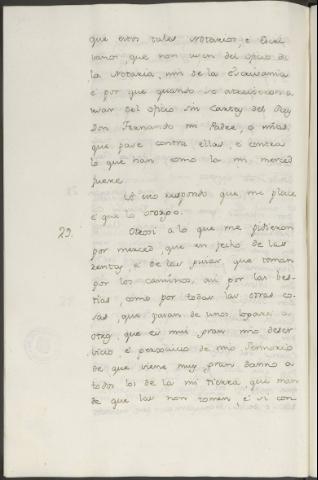 que estos tales Notarios, e Escri
banos que non usen del oficio de
la Notaria, nin de la Escrivania
e por que quando se atrevieron a
usar del oficio sin cartas del Rey
Don Fernando mi Padre, o mias,
que pase contra ellos, e contra
lo que han como la mi merced
fuere.
A esto respondo que me place
e que lo otorgo.
29. Otrosi a lo que me pidieron
por merced, que en fecho de las
rentas, e de las que toman
por los caminos, asi por las bes-
tias, como por todas las otras co-
sas, que pasan de unos logares a
otros, que es mui gran mio deser
vicio e perjuicio de mio Sennorio
de que viene muy gran danno a
todos los de la mi tierra, que man
de que las non tomen, e si con